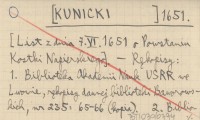 [KUNICKI] 1651.
[List z dnia 7.VI.1651 o Powstaniu
Kostki Napierskiego] — Rękopisy:
1. Biblioteka Akademii Nauk USRR we
Lwowie, rękopisy dawnej biblioteki Baworow-
skich, nr 235: 65-66 (kopia). 2. Biblio-